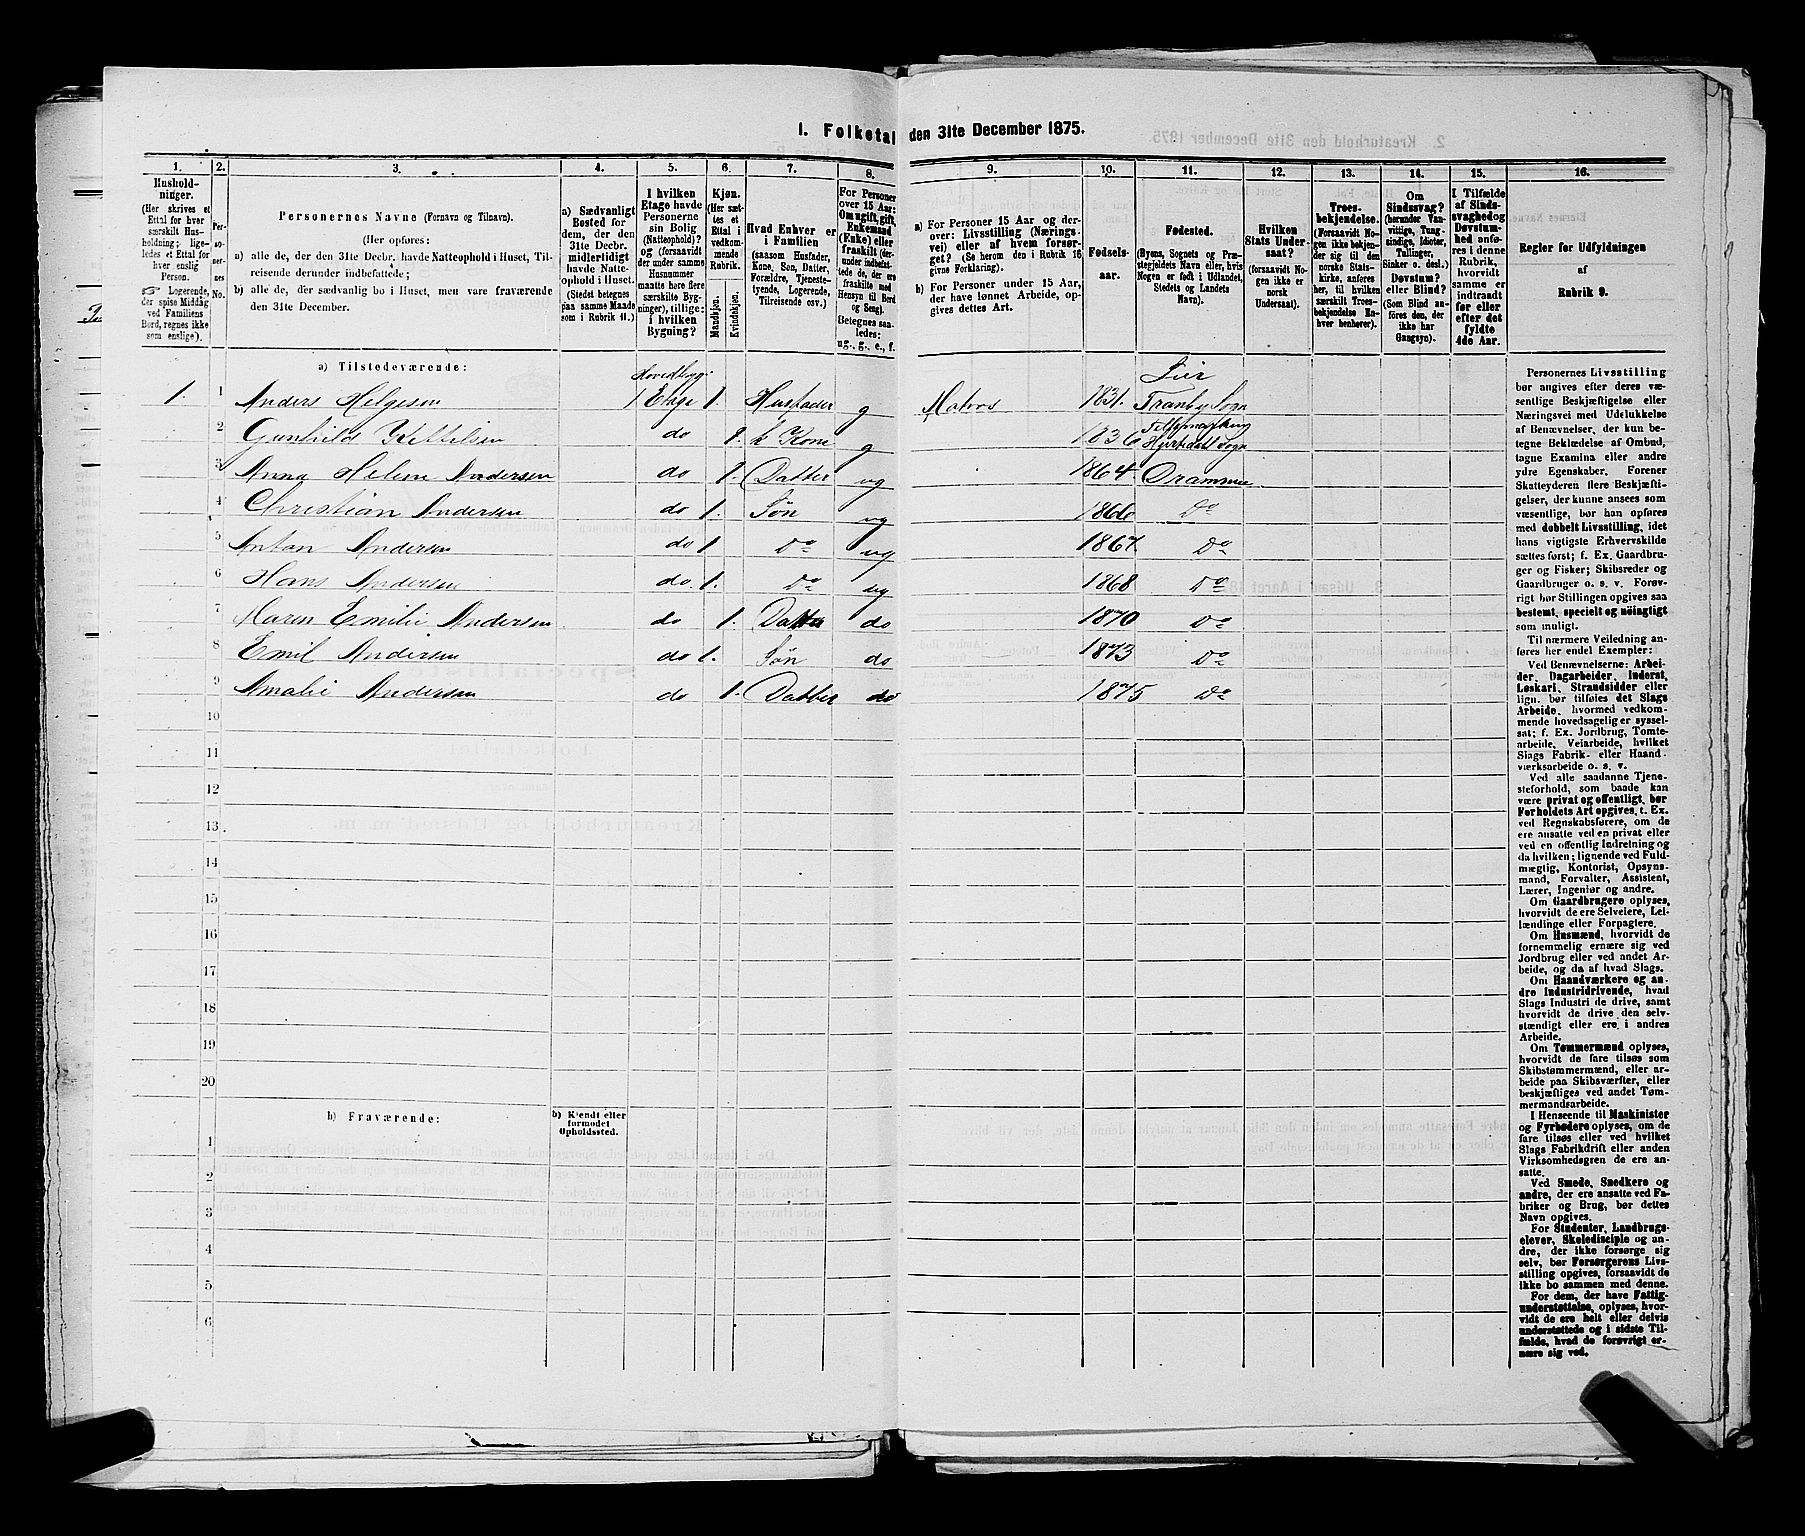 1. Folketal den 31te December 1875.
1. 2. 3. 4. 5. 6. 7. 8. 9. 10. 11. 12. 13. 14. 15. 16.
Hushold-
ninger.
(Her skrives et
Ettal for hver
særskilt Hus-
holdning; lige-
ledes et Ettal for
hver enslig
Person.
☞ Logerende,
der spise Middag
ved Familiens
Bord, regnes ikke
som enslige).
Per-
so-
ner-
nes
No.
Personernes Navne (Fornavn og Tilnavn).
(Her opføres:
a) alle de, der den 31te Decbr. havde Natteophold i Huset, Til-
reisende derunder indbefattede;
b) alle de, der sædvanlig bo i Huset, men vare fraværende
den 31te December.
a) Sædvanligt
Bosted for
dem, der den
31te Decbr.
midlertidigt
havde Natte-
ophold i Huset.
(Stedet betegnes
paa samme Maade
som i Rubrik 11.)
I hvilken
Etage havde
Personerne
sin Bolig
(Natteophold)?
og (forsaavidt
der under samme
Husnummer
maatte høre flere
særskilte Byg-
ninger), tillige:
i hvilken
Bygning?
Kjøn.
(Her sæt-
tes et
Ettal i
vedkom-
mende
Rubrik.
Mandkjøn.
Kvindkjøn.
Hvad Enhver er
i Familien
(saasom Husfader,
Kone, Søn, Datter,
Forældre, Tjeneste-
tyende, Logerende,
Tilreisende osv.)
For Personer
over 15 Aar:
Om ugift, gift,
Enkemand
(Enke) eller
fraskilt (der-
under indbefat-
tede de, der ere
fraskilte med
Hensyn til Bord
og Seng).
Betegnes saa-
ledes:
ug., g., e., f.
a) For Personer 15 Aar og der-
over: Livsstilling (Nærings-
vei) eller af hvem forsør-
get? (Se herom den i Rubrik 16
givne Forklaring).
b) For Personer under 15 Aar,
der have lønnet Arbeide, op-
gives dettes Art.
Fødsels-
aar.
Fødested.
(Byens, Sognets og Præ-
stegjeldets Navn eller, hvis
Nogen er født i Udlandet,
Stedets og Landets
Navn).
Hvilken
Stats Under-
saat?
(forsaavidt No-
gen ikke er
norsk
Undersaat).
Troes-
bekjendelse.
(Forsaavidt No-
gen ikke bekjen-
der sig til den
norske Stats-
kirke, anføres
her, til hvilken
særskilt Troes-
bekjendelse En-
hver henhører).
Om
Sindssvag?
(herunder Van-
vittige, Tung-
sindige, Idioter,
Tullinger,
Sinker o. desl.)
Døvstum?
eller Blind?
(Som Blind an-
føres den, der
ikke har
Gangsyn).
I Tilfælde
af Sinds-
svaghed og
Døvstum-
hed anfø-
res i denne
Rubrik,
hvorvidt
samme er
indtraadt
før eller
efter det
fyldte
4de Aar.
Regler for Udfyldningen
af
Rubrik 9.
a) Tilstedeværende:
Hovedbyg. Lier
1. 1 Anders Helgesen 1 Etage 1. Husfader g Matros 1831. Tranby Sogn
2 Gunhild Kittilsen do 1. h Kone g 1836 Tellemarken Hjertdall Sogn
3 Anna Helene Andersen do 1. Datter ug 1864 Drammen
4 Christian Andersen do 1. Søn ug 1866 Do
5 Anton Andersen do 1. Do ug 1867 Do
6 Hans Andersen do. 1. Do ug 1868 Do
7 Maren Emilie Andersen do 1. Datter do 1870 Do
8 Emil Andersen do 1. Søn do 1873 Do
9 Amalie Andersen do 1. Datter do 1875 Do
10
11
12
13
14
15
16
17
18
19
20
b) Fraværende:
b) Kjendt eller
formodet
Opholdssted.
1
2
3
4
5
6
Personernes Livsstilling
bør angives efter deres væ-
sentlige Beskjæftigelse eller
Næringsvei med Udelukkelse
af Benævnelser, der kun be-
tegne Beklædelse af Ombud,
tagne Examina eller andre
ydre Egenskaber. Forener
Skatteyderen flere Beskjæfti-
gelser, der kunne ansees som
væsentlige, bør han opføres
med dobbelt Livsstilling, idet
hans vigtigste Erhvervskilde
sættes først; f. Ex. Gaardbru-
ger og Fisker; Skibsreder og
Gaardbruger o. s. v. Forøv-
rigt bør Stillingen opgives saa
bestemt, specielt og nöingtigt
som muligt.
Til nærmere Veiledning an-
føres her endel Exempler:
Ved Benævnelserne: Arbei-
der, Dagarbeider, Inderst,
Løskarl, Strandsidder eller
lign. bør tilføies det Slags
Arbeide, hvormed vedkom-
mende hovedsagelig er syssel-
sat; f. Ex. Jordbrug, Tomte-
arbeide, Veiarbeide, hvilket
Slags Fabrik- eller Haand-
værksarbeide o. s. v.
Ved alle saadanne Tjene-
steforhold, som baade kan
være privat og offentligt, bør
Forholdets Art opgives, t. Ex.
ved Regnskabsførere, om de
ere ansatte ved en privat eller
ved en offentlig Indretning og
da hvilken; lignende ved Fuld-
mægtig, Kontorist, Opsyns-
mand, Forvalter, Assistent,
Lærer, Ingeniør og andre.
Om Gaardbrugere oplyses,
hvorvidt de ere Selveiere, Lei-
lændinge eller Forpagtere.
Om Husmænd, hvorvidt de
fornemmelig ernære sig ved
Jordbrug eller ved andet Ar-
beide, og da af hvad Slags.
Om Haandværkere og an-
dre Industridrivende, hvad
Slags Industri de drive, samt
hvorvidt de drive den selv-
stændigt eller ere i andres
Arbeide.
Om Tømmermænd oplyses,
hvorvidt de fare tilsøs som
Skibstømmermænd, eller ar-
beide paa Skibsværfter, eller
beskjæftiges ved andet Tøm-
mermandsarbeide.
I Henseende til Maskinister
og Fyrbødere oplyses, om de
fare tilsøs eller ved hvilket
Slags Fabrikdrift eller anden
Virksomhedsgren de ere an-
satte.
Ved Smede, Snedkere og
andre, der ere ansatte ved Fa-
briker og Brug, bør dettes
Navn opgives.
For Studenter, Landbrugs-
elever, Skoledisciple og an-
dre, der ikke forsørge sig
selv, bør Forsørgerens Livs-
stilling opgives, forsaavidt de
ikke bo sammen med denne.
For dem, der have Fattig-
understøttelse, oplyses, hvor-
vidt de ere helt eller delvis
understøttede og i sidste Til-
fælde, hvad de forøvrigt er-
nære sig ved.